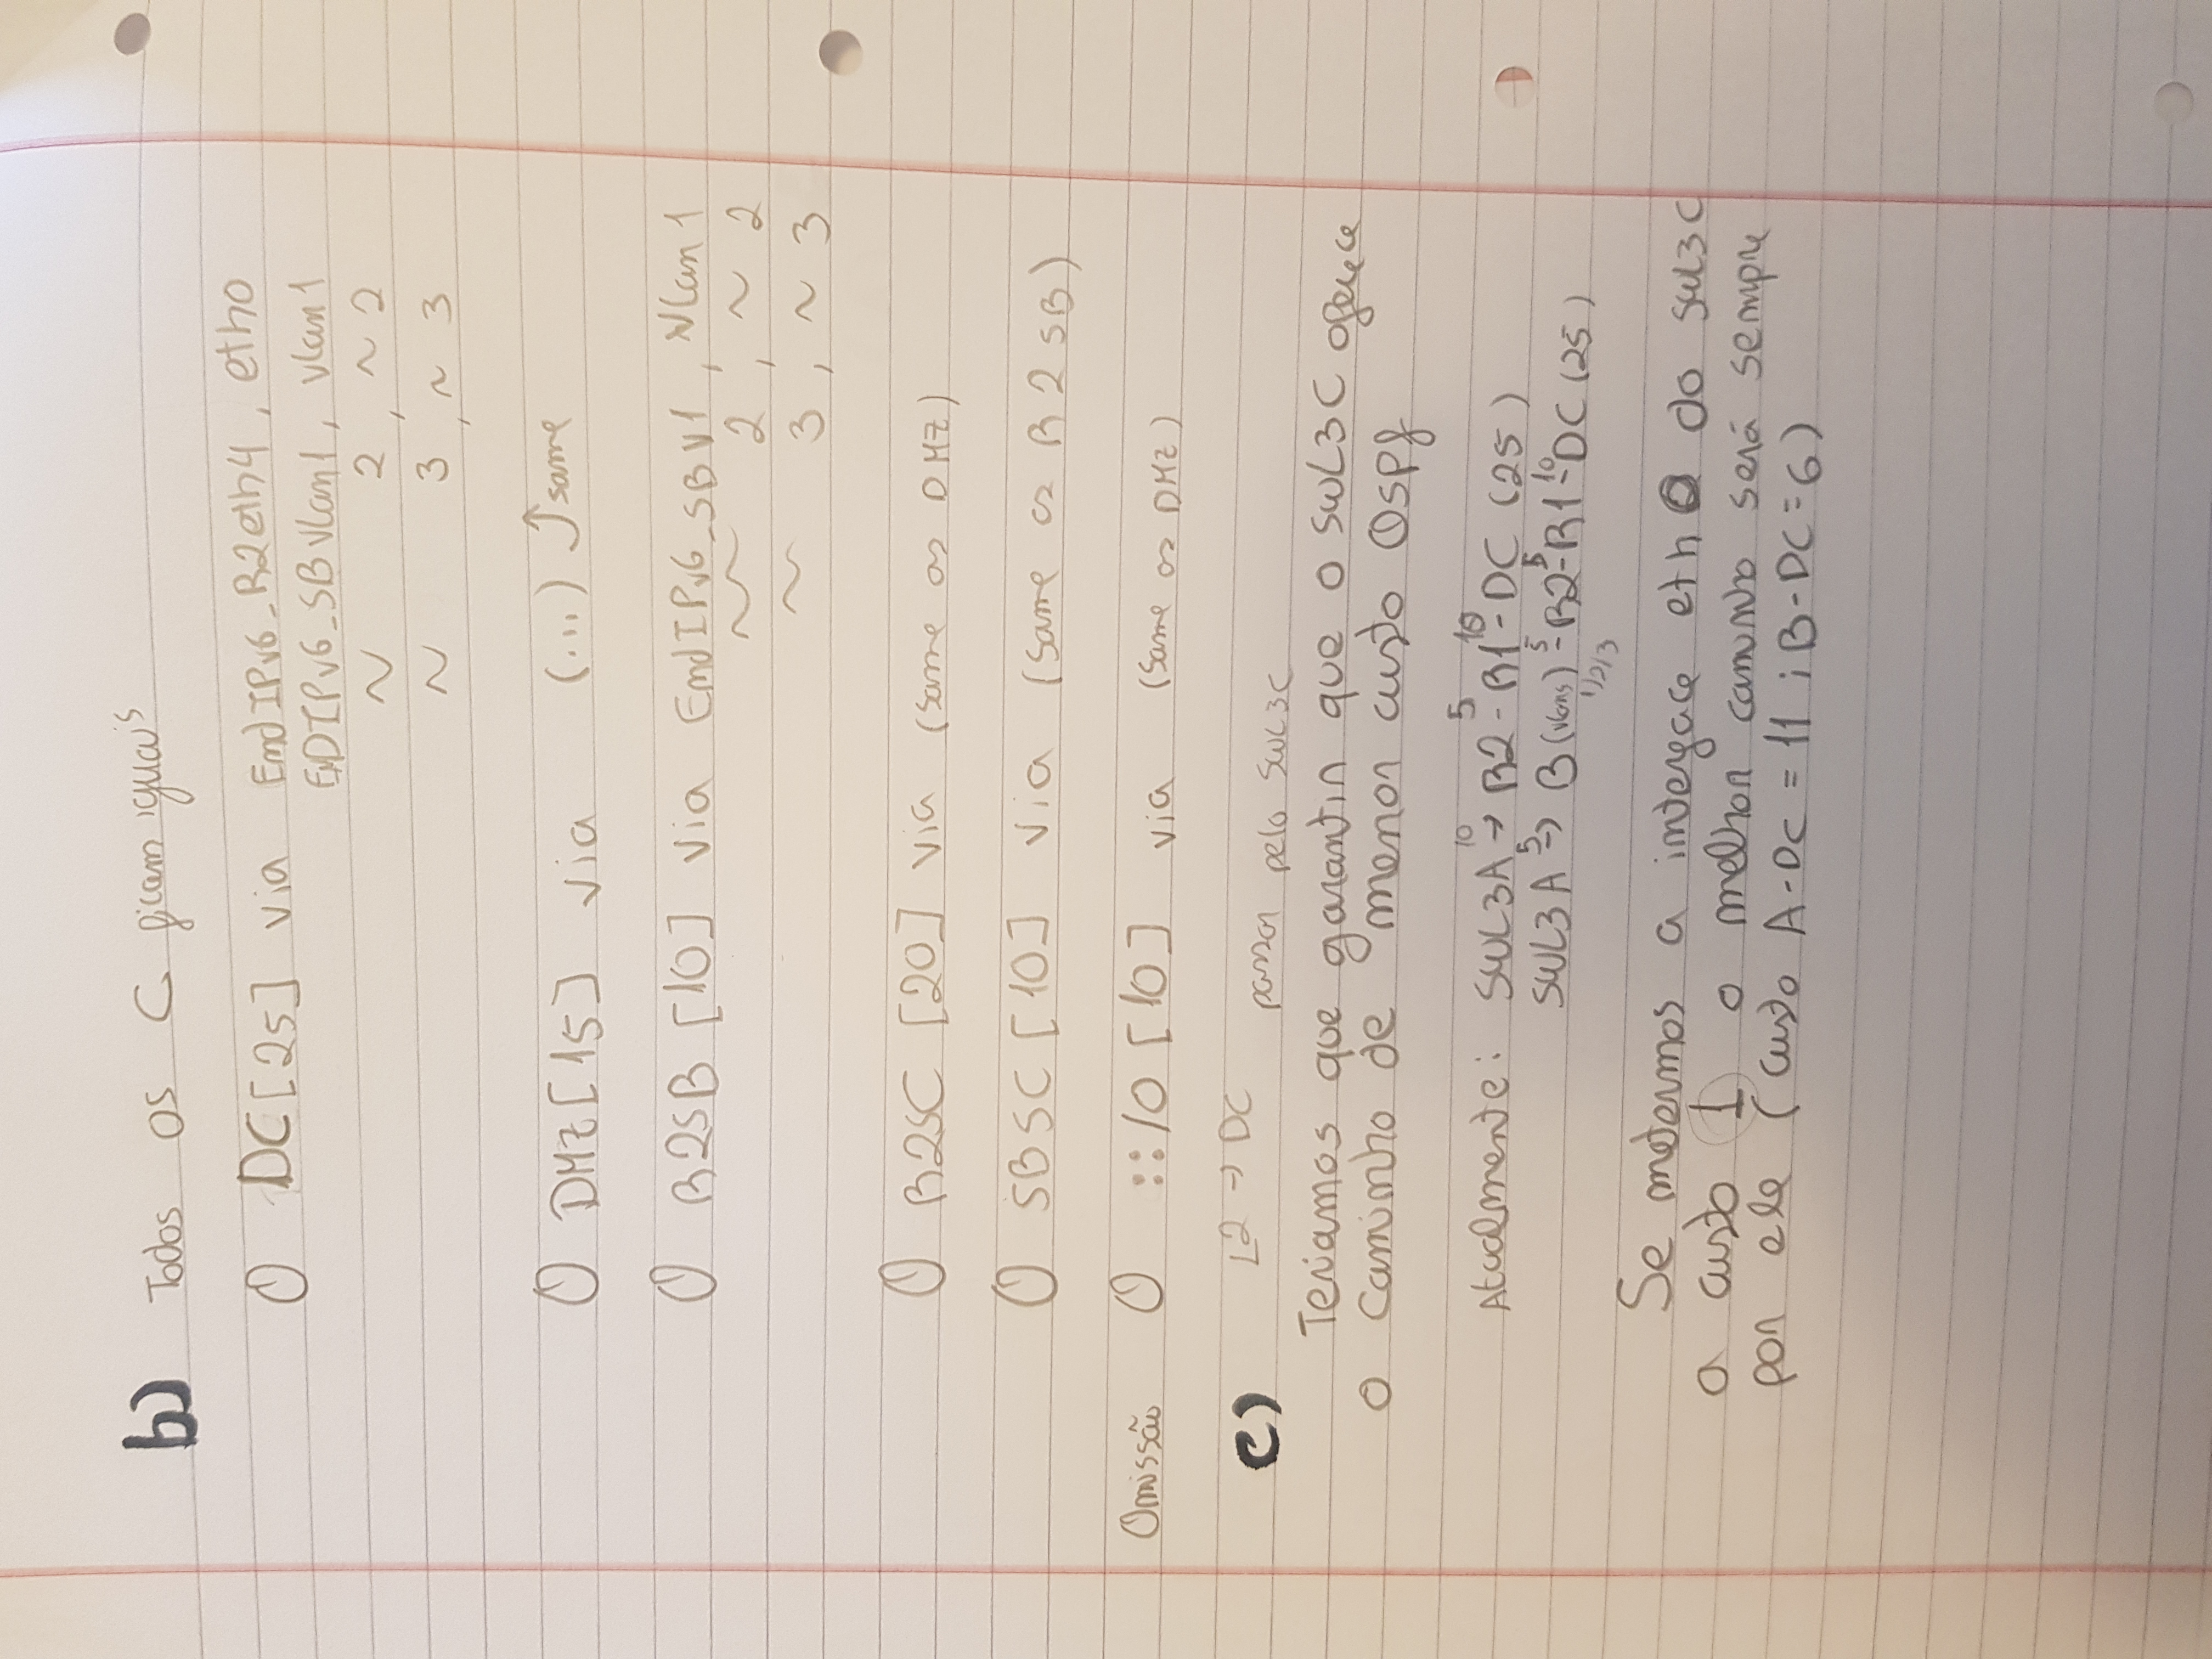 b) Todos os C ficam iguais
O DC [25] via EndIPv6_R2eth4, eth0
EndIPv6_SBVlan1, Vlan1
~ 2, ~ 2
~ 3, ~ 3
O DMZ [15] via (...) ↑ same
O R2SB [10] via EndIPv6_SBV1, Vlan1
~ 2, ~ 2
~ 3, ~ 3
O R2SC [20] via (same as DMZ)
O SBSC [10] via (same as R2SB)
Omissão O ::/0 [10] via (same as DMZ)
c) L2 → DC passar pelo SWL3C
Teriamos que garantir que o SWL3C oferece
o caminho de menor custo OSPf
Atualmente: SWL3A 10→ R2 5- R1 10- DC (25)
SWL3A 5→ B (vlans) 5- R2 5- R1 10- DC (25)
1/2/3
Se metermos a interface eth 0 do SWL3C
a custo 1 o melhor caminho será sempre
por ele (custo A-DC = 11 ; B-DC = 6)